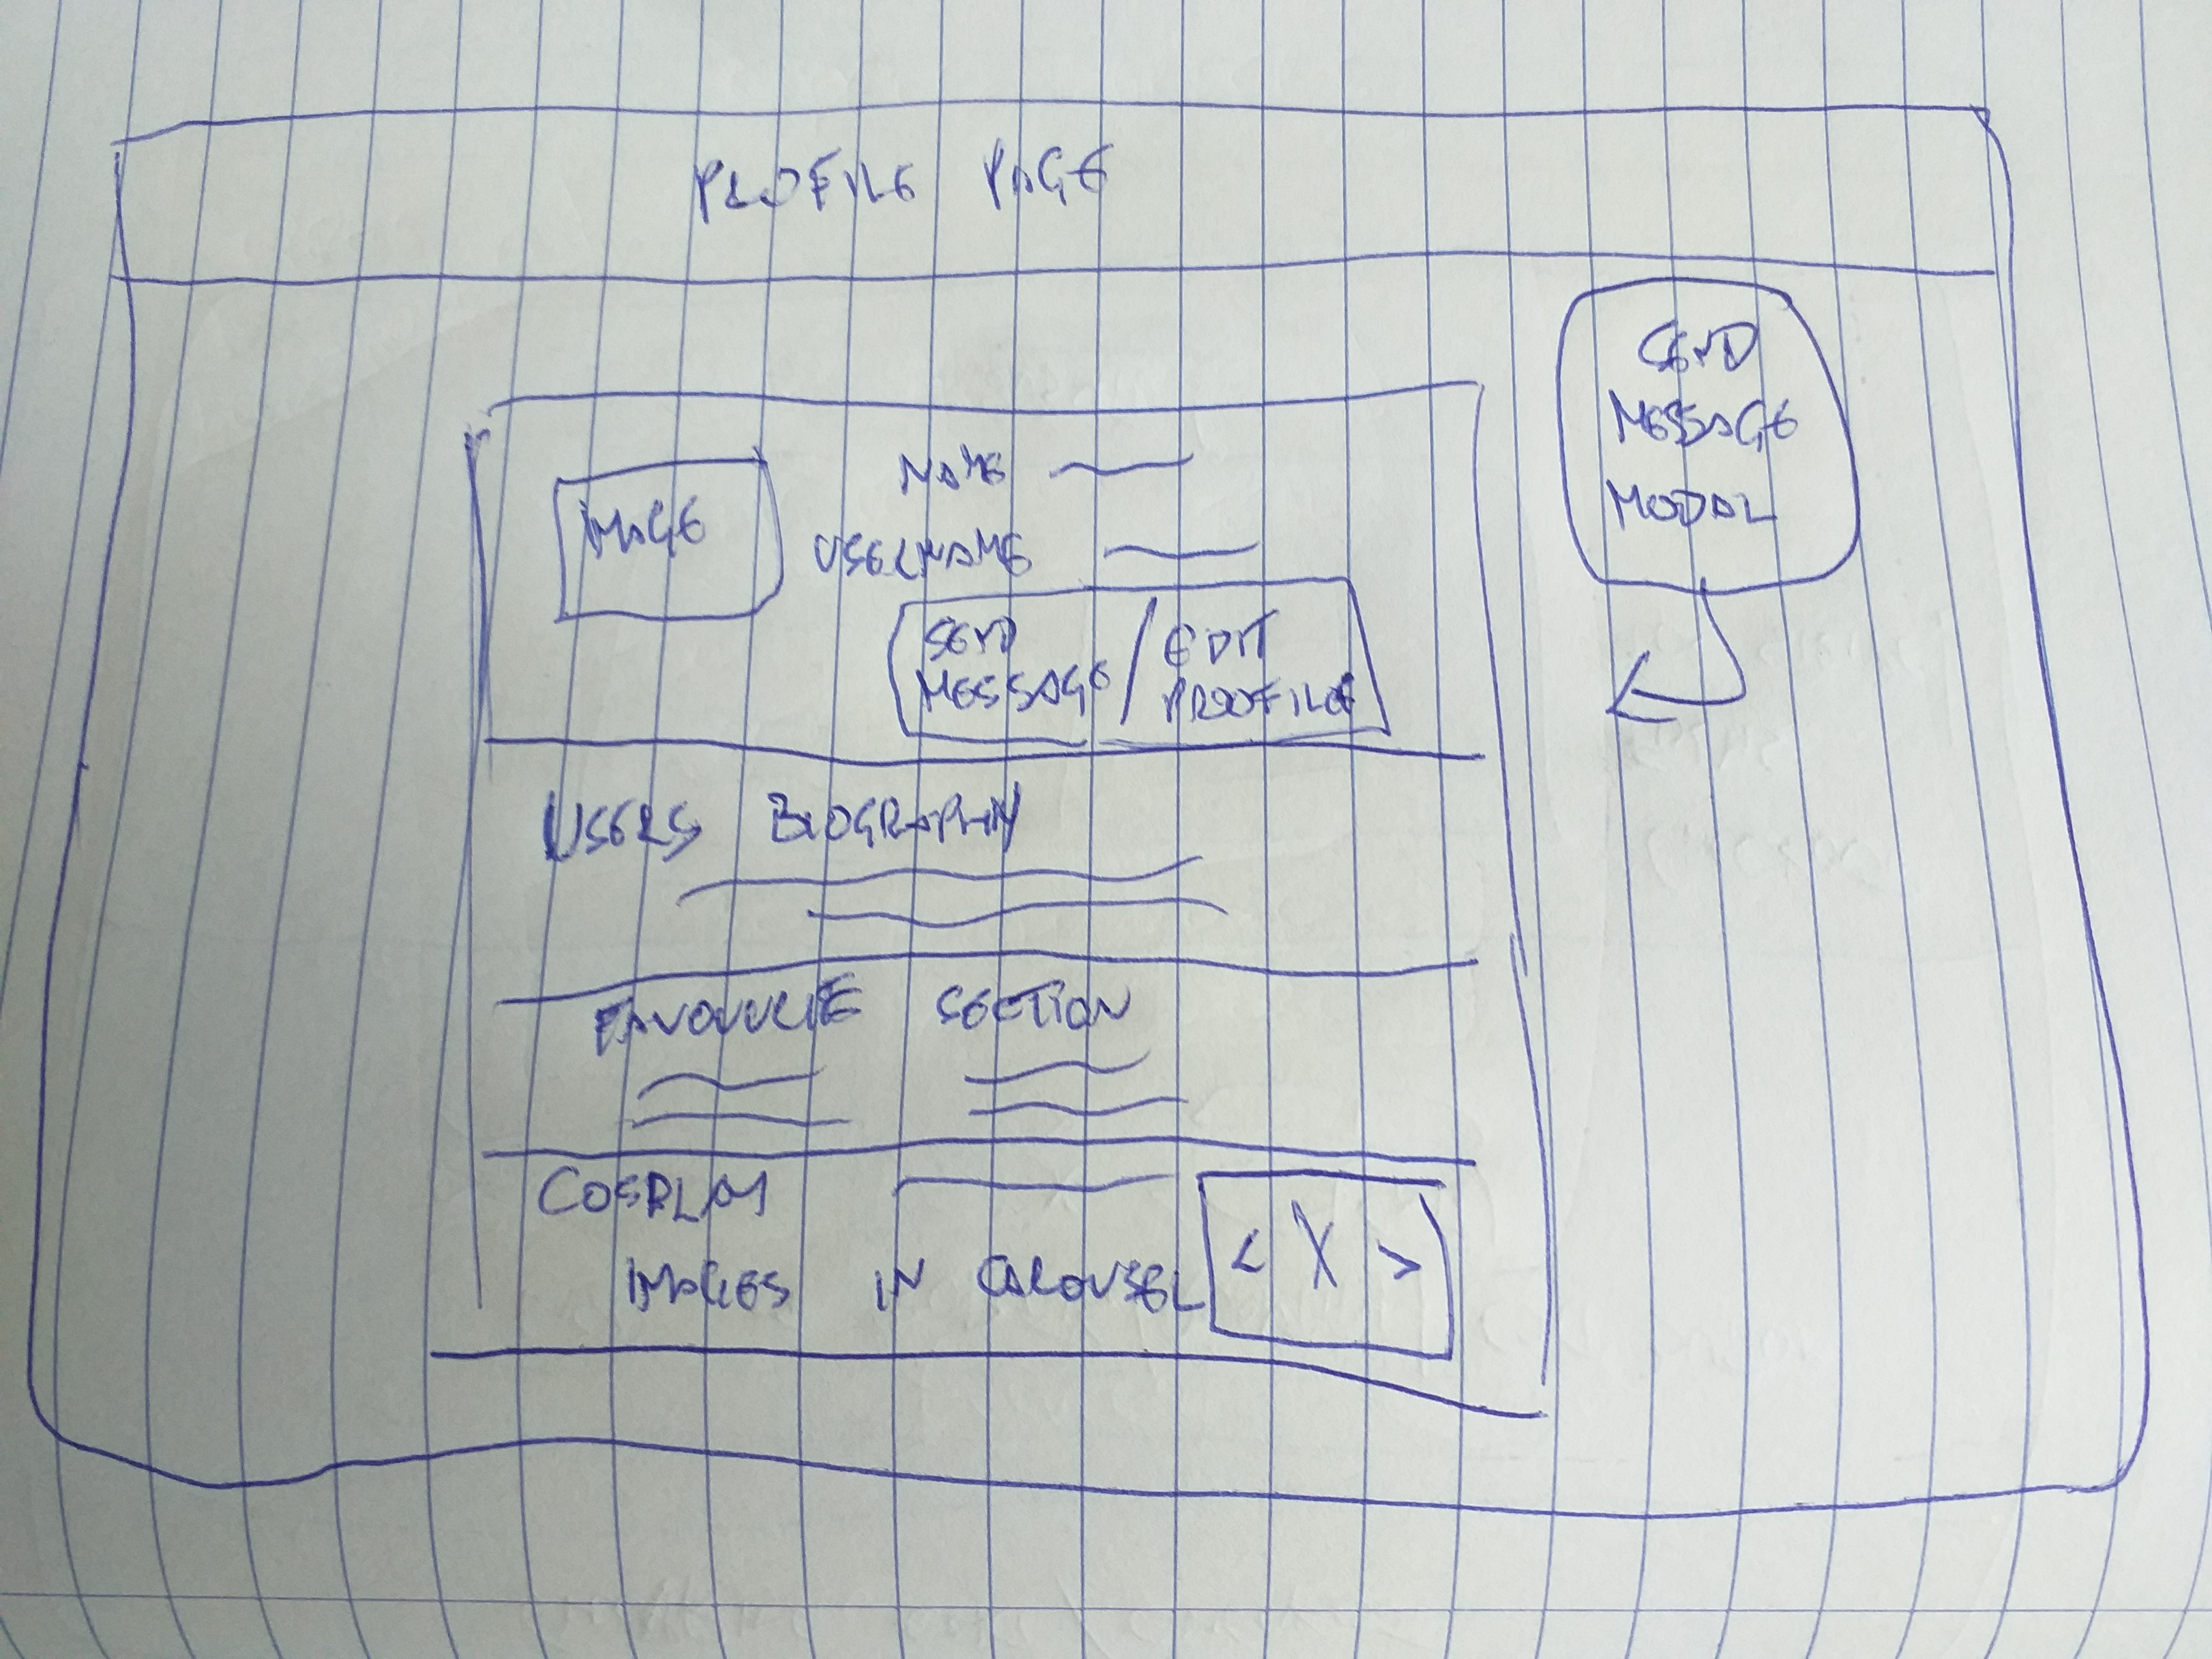 PROFILE PAGE
SEND
MESSAGE
MODAL
IMAGE
NAME
USERNAME
SEND
MESSAGE / EDIT
PROFILE
USERS BIOGRAPHY
FAVOURITE SECTION
COSPLAY
IMAGES IN CAROUSEL
< X >